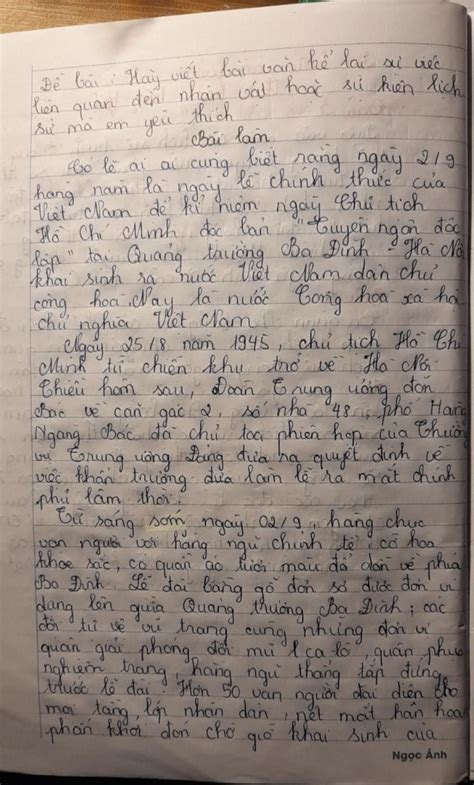 Đề bài : Hãy viết bài văn kể lại sự việc
liên quan đến nhân vật hoặc sự kiện lịch
sử mà em yêu thích
Bài làm
Có lẽ ai ai cũng biết rằng ngày 2/9
hàng năm là ngày lễ chính thức của
Việt Nam để kỉ niệm ngày Chủ tịch
Hồ Chí Minh đọc bản "Tuyên ngôn độc
lập" tại Quảng trường Ba Đình - Hà Nội
khai sinh ra nước Việt Nam dân chủ
cộng hòa. Nay là nước Cộng hòa xã hội
chủ nghĩa Việt Nam.
Ngày 25/8 năm 1945, chủ tịch Hồ Chí
Minh từ chiến khu trở về Hà Nội
Chiều hôm sau, Đoàn Trung ương đón
Bác về căn gác 2, số nhà 48, phố Hàng
Ngang. Bác đã chủ tọa phiên họp của Thường
vụ Trung ương Đảng đưa ra quyết định về
việc khẩn trương đưa làm lễ ra mắt chính
phủ lâm thời.
Từ sáng sớm ngày 02/9, hàng chục
vạn người với hàng ngũ chỉnh tề, cờ hoa
khoe sắc, có quần áo tươi màu đổ dồn về phía
Ba Đình. Lễ đài bằng gỗ đơn sơ được đơn vị
dang lên giữa Quảng trường Ba Đình; các
đội tự vệ vũ trang cùng những đơn vị
quân giải phóng đội mũ ca lô, quân phục
nghiêm trang, hàng ngũ thẳng tắp đứng
trước lễ đài. Hơn 50 vạn người đại diện cho
mọi tầng lớp nhân dân, nét mặt hân hoan
phấn khởi đón chờ giờ khai sinh của
Ngọc Ánh